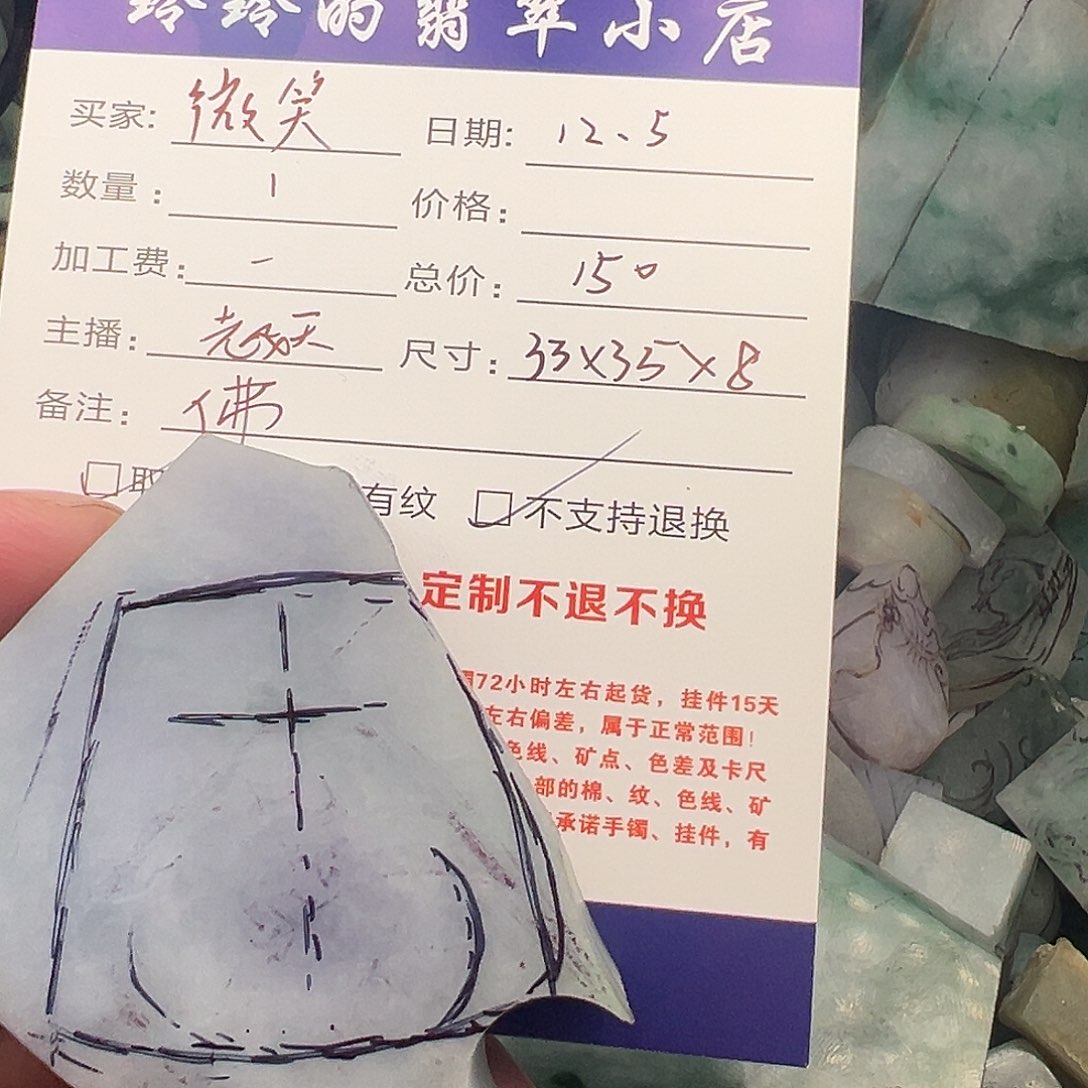 玲玲的翡翠小店
买家: 微笑 日期: 12、5
数量: 1 价格:
加工费: - 总价: 150
主播: 尺寸: 33X35X8
备注: 佛
有纹 不支持退换
定制不退不换
72小时左右起货，挂件15天
左右偏差，属于正常范围！
色线、矿点、色差及卡尺
部的棉、纹、色线、矿
承诺手镯、挂件，有